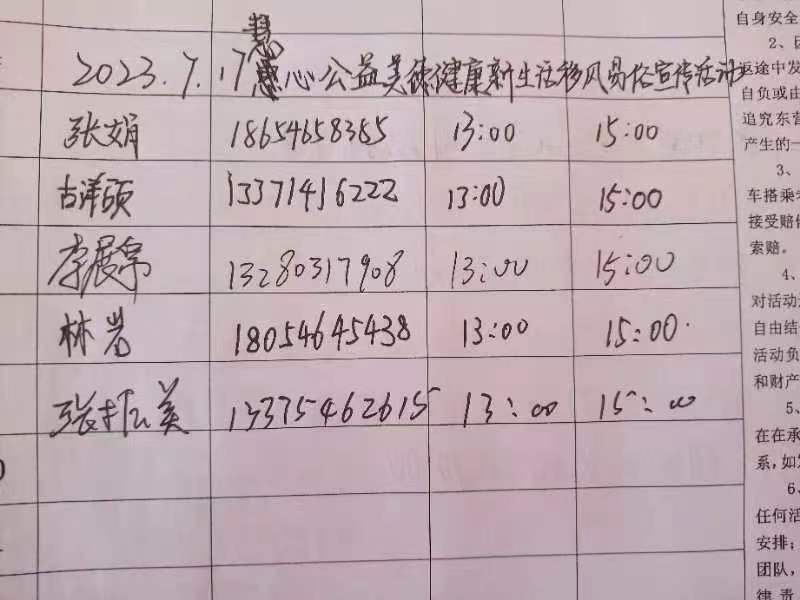 慧
2023.7.17 惠心公益美德健康新生活移风易俗宣传活动
张娟 18654658385 13:00 15:00
古洋硕 13371416222 13:00 15:00
李展常 13280317908 13:00 15:00
林岩 18054645438 13:00 15:00.
张振美 13375462615 13:00 15:00
自身安全
2、因
返途中发
自负或由
追究东营
产生的一
3、
车搭乘
接受赔偿
索赔。
4、
对活动
自由结
活动负
和财产
5、
在在承
系,如
6、
任何活
安排;
团队,
律责